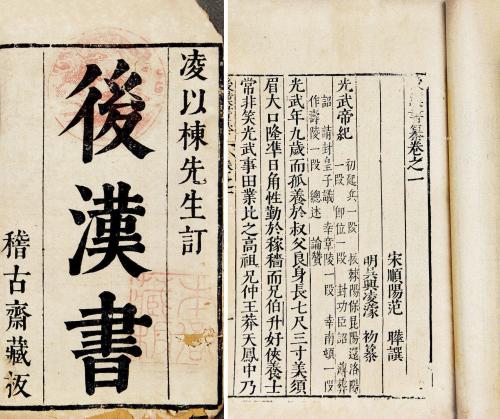 凌以棟先生訂
後漢書
稽古齋藏板
後漢書纂卷之一
宋順陽范 曄譔
明吳興凌濛 初纂
光武帝紀
初起兵一段 棘陽保昆陽還洛陽
一段 即位一段 封功臣詔 薄葬
詔 請封皇子議 幸章陵一段 幸南頓一段
作壽陵一段 總述 論贊
光武年九歲而孤養於叔父良身長七尺三寸美須
眉大口隆準日角性勤於稼穡而兄伯升好俠養士
常非笑光武事田業比之高祖兄仲王莽天鳳中乃